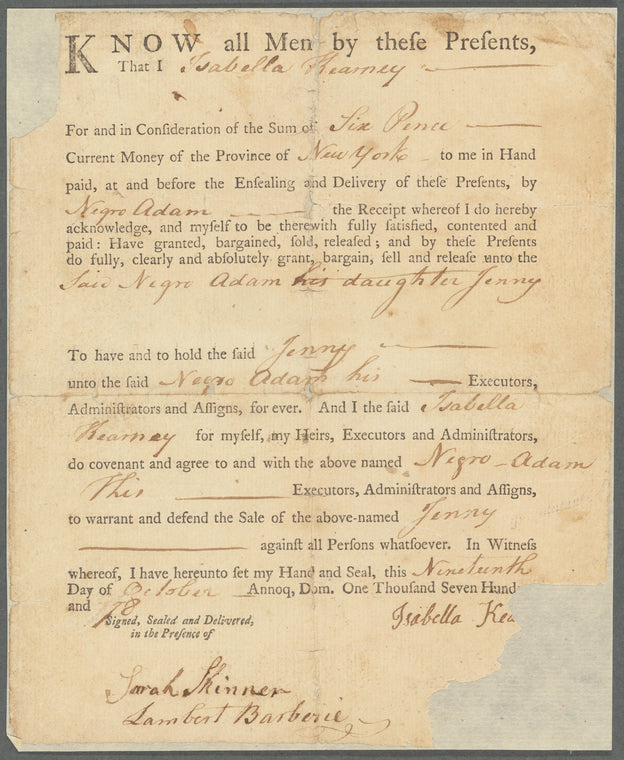 KNOW all Men by theſe Preſents,
That I Isabella Kearney
For and in Conſideration of the Sum of Six Pence
Current Money of the Province of New York to me in Hand
paid, at and before the Enſealing and Delivery of theſe Preſents, by
Negro Adam the Receipt whereof I do hereby
acknowledge, and myſelf to be therewith fully ſatisfied, contented and
paid: Have granted, bargained, ſold, releaſed; and by theſe Preſents
do fully, clearly and abſolutely grant, bargain, ſell and releaſe unto the
Said Negro Adam his daughter Jenny
To have and to hold the ſaid Jenny
unto the ſaid Negro Adam his Executors,
Adminiſtrators and Aſſigns, for ever. And I the ſaid Isabella
Kearney for myſelf, my Heirs, Executors and Adminiſtrators,
do covenant and agree to and with the above named Negro-Adam
his Executors, Adminiſtrators and Aſſigns,
to warrant and defend the Sale of the above-named Jenny
againſt all Perſons whatſoever. In Witneſs
whereof, I have hereunto ſet my Hand and Seal, this Nineteenth
Day of October Annoq; Dom. One Thouſand Seven Hund
and 78
Signed, Sealed and Delivered, Isabella Kea
in the Preſence of
Sarah Skinner
Lambert Barberie